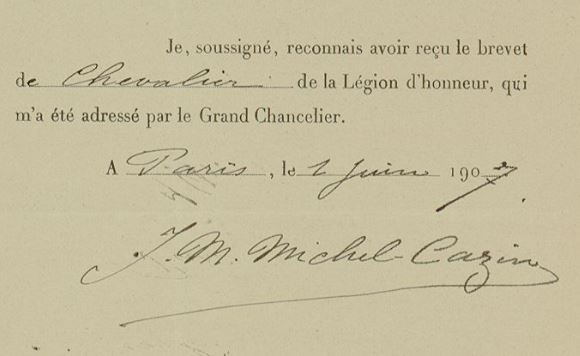 Je, soussigné, reconnais avoir reçu le brevet
de Chevalier de la Légion d'honneur, qui
m'a été adressé par le Grand Chancelier.
A Paris, le 1 Juin 1907.
J. M. Michel-Cazin